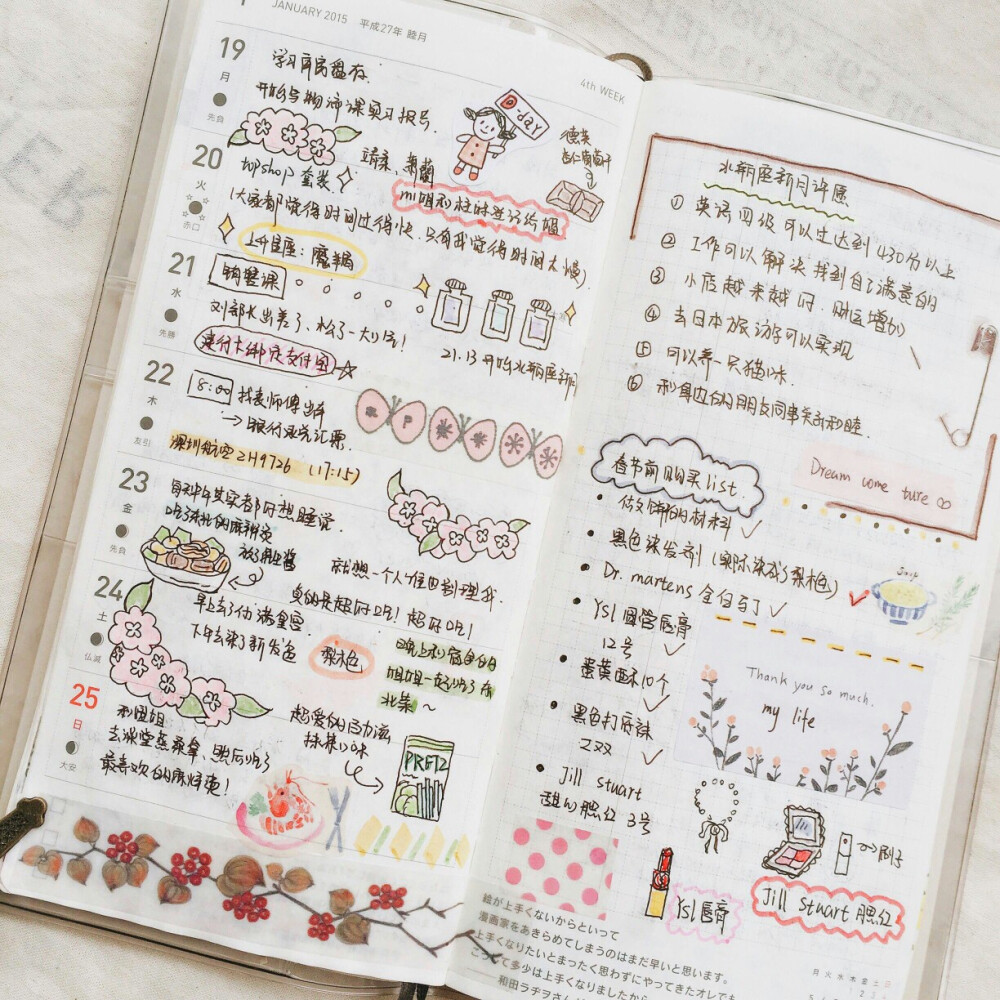 JANUARY 2015 平成27年 睦月
4th WEEK
19
月
先負
学习库房盘存.
开始写物流课实习报告.
D-day
德芙
20
火
赤口
topshop 套装
(大家都觉得时间过得快.只有我觉得时间太慢)
上升星座: 魔羯
21
水
先勝
销售课
刘部长出差了、松了一大口气!
建行卡绑定支付宝
21.13 开始水瓶座新月
22
木
友引
8:00 找表师傅出车
→ 银行兑汇票
深圳航空 ZH9726 (17:15)
23
金
先負
每天中午其实都好想睡觉.
就想一个人.谁也别理我.
真的是超好吃! 超好吃!
24
土
仏滅
早上去了什满皇宫
下午去染了新发色
梨木色
晚上和宿舍的
姐姐一起吃了东
北菜 ~
25
日
大安
最喜欢的麻辣烫!
超爱的百力滋
抹茶口味
PRETZ
水瓶座新月许愿
① 英语四级可以过达到430分以上
② 工作可以解决找到自己满意的
③ 小店越来越好. 财运增加
④ 去日本旅游可以实现
⑤ 可以养一只猫咪.
⑥ 和身边的朋友同事关系和睦.
Dream come ture ∞
春节前购买list.
• 做文件的材料 ✓
• 黑色染发剂 (实际染成了梨木色) ✓
• Dr. martens 全白马丁 ✓
Soup
• Ysl 圆管唇膏
12号 ✓
• 蛋黄酥10个 ✓
• 黑色打底袜
2双 ✓
• Jill stuart
甜心腮红 3号
Thank you so much.
my life
刷子
Ysl唇膏
Jill stuart 腮红
絵が上手くないからといって
漫画家をあきらめてしまうのはまだ早いと思います。
上手くなりたいとまったく思わずにやってきたオレでも
こうって多少は上手くなりましたから
和田ラヂヲさん
日 火 水 木 金 土